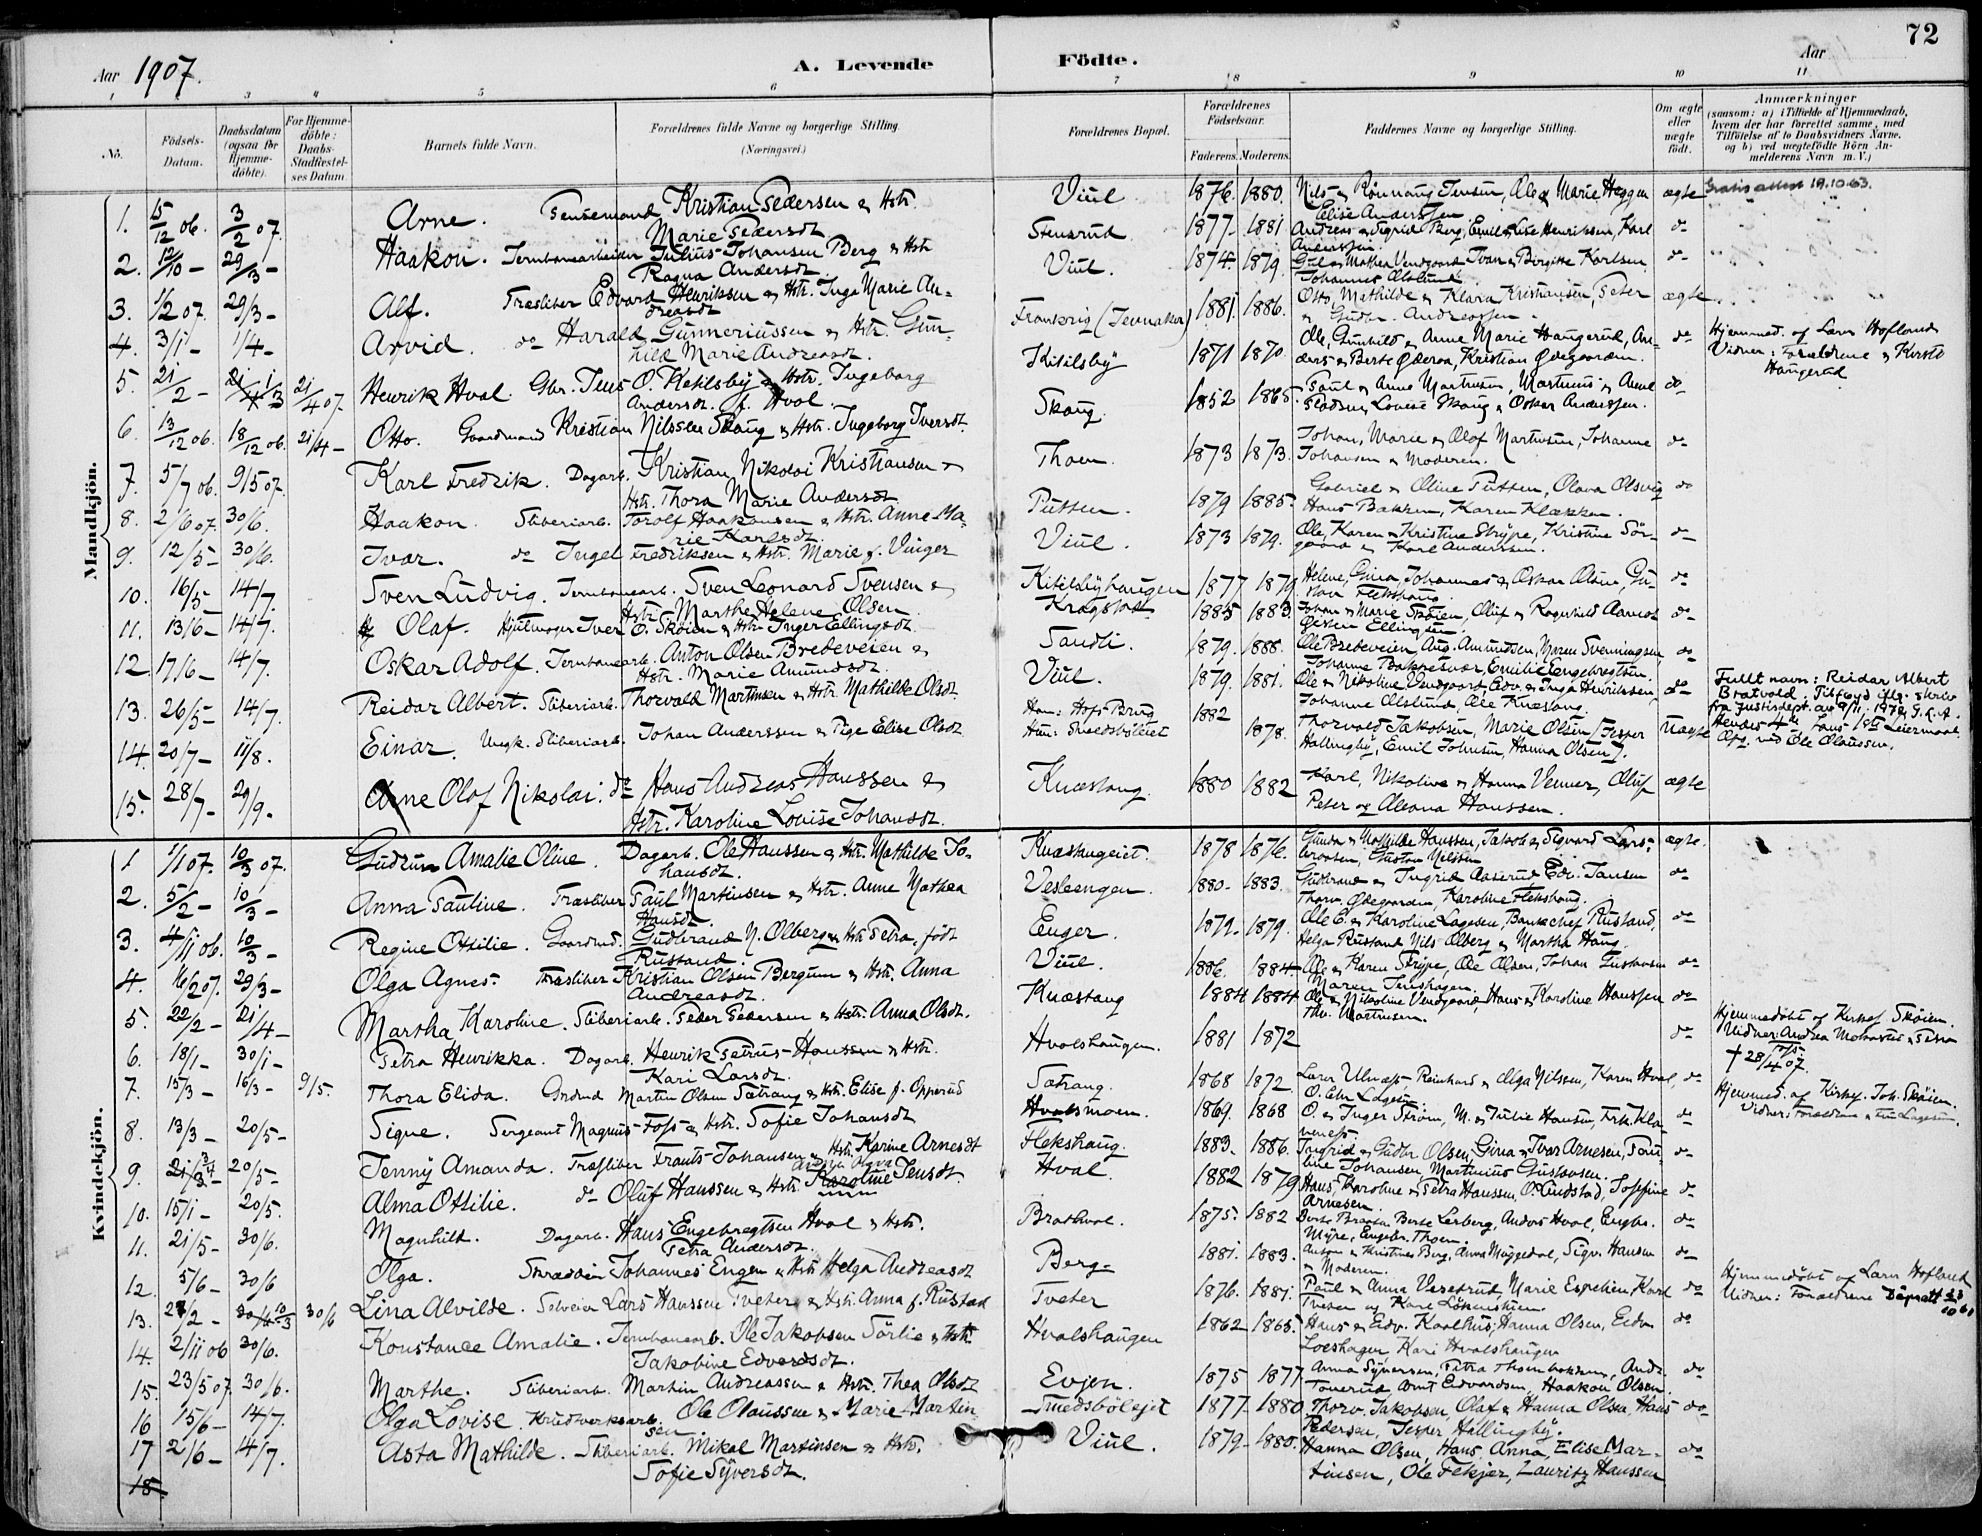 72
Aar 1907.
A. Levende Födte.
Aar
1 3 4 5 6 7 8 9 10 11
No.
Födsels-Datum.
Daabsdatum (ogsaa for Hjemme-döbte).
For Hjemme-döbte: Daabs-Stadfæstel-ses Datum.
Barnets fulde Navn.
Forældrenes fulde Navne og borgerlige Stilling. (Næringsvei.)
Forældrenes Bopæl.
Forældrenes Födselsaar.
Faderens. Moderens.
Faddernes Navne og borgerlige Stilling.
Om ægte eller uægte födt.
Anmærkninger
(saasom: a) i Tilfælde af Hjemmedaab,
hvem der har forrettet samme, med
Tilföielse af to Daabsvidners Navne,
og b) ved uægtefödte Börn An-
melderens Navn m. V.)
Mandkjön.
1. 15/12 06. 3/2 07. Arne. Kristian Pedersen & Hstr. Marie Pedersdt. Viul 1876. 1880. Nils & Rönnaug Jensen, Ole & Marie Heggen ægte Gratis attest 19.10.63.
Elise Anderssen
2. 12/10 - 29/3 - Haakon. Jernbanearbeider Julius Johansen Berg & Hstr. Ragna Andersdt. Stensrud 1877 - 1881 Andreas & Sigrid Berg, Emil & Lise Henriksen, Karl Anderssen. do
3. 1/2 07. 29/3 - Alf. Træsliber Edvard Henriksen & Hstr. Inga Marie Andreasdt. Viul. 1874. 1879. & Mathea Vendgaard Ivar & Birgitte Karlsen, Johannes do
4. 3/1 - 1/4 - Arvid. do Harald Gunneriussen & Hstr. Gunhild Marie Andreasdt. Frankrig (Jevnaker) 1881. 1886. Otto, Mathilde & Klara Kristiansen, Peter & Gudbr. Andreassen. ægte
5. 21/2 - 1/3 21/4 07. Henrik Hval. Gbr. Jens O. Ketilsby & Hstr. Ingeborg Andersdt. f. Hval. Kitilsby 1871 1870. Ole, Gunhild & Anne Marie Haugerud, Anders & Berte Øderaa, Kristian Ødegaarden. do Hjemmed. af Lars Hofland
Vidner: Forældrene & Kirsti Haugerud
6. 13/12 06. 18/12 06. 21/4 - Otto. Gaardmand Kristian Nilssen Skaug & Hstr. Ingeborg Iversdt. Skaug. 1852 1865. Paul & Anne Martinsen, Martinius & Anne Louise Skaug & Oskar Anderssen. do
7. 5/7 06. 9/5 07. Karl Fredrik. Dagarb. Kristian Nikolai Kristiansen & Hstr. Thora Marie Andersdt. Thoen. 1873 1873. Johan, Marie & Olof Martinsen, Johanne Johansen & Moderen. do
8. 2/6 07. 30/6. Haakon. Sliberiarb. Torolf Haakonsen & Hstr. Anne Marie Karlsdt. Putten. 1879 1885. Gabriel & Oline Putten, Olava Hans Bakken, Karen Klækken. do
9. 12/5 - 30/6. Ivar. do Ingel Fredriksen & Hstr. Marie f. Vinger Viul. 1873 1879. Ole, Karen & Kristine Strype, Kristine Sörgaard & Karl Anderssen. do
10. 16/5 - 14/7. Sven Ludvig. Jernbanearb. Sven Leonard Svensen & Hstr. Marthe Helene Olsen. Kitilsbyhaugen 1877 1879 Helene, Gina, Johannes & Oskar Olsen, Flekshaug. do
11. 13/6 - 14/7. Olaf. Hjulmager Iver O. Skøien & Hstr. Inger Ellingsdt. Kragstad 1885 1883. Johan & Marie Skøien, Oluf & Ragnhild Ellingsen. do
12. 17/6 - 14/7. Oskar Adolf. Jernbanearb. Anton Olsen Bredeveien & Hstr. Marie Amundsdt. Sandli. 1879. 1888. Ole Bredeveien, Aug. Amundsen, Maren Svenningsen, Johanne Emilie Engebregtsen. do
13. 26/5 - 14/7. Reidar Albert. Sliberiarb. Thorvald Martinsen & Hstr. Mathilde Olsdt. Viul. 1879. 1881. Ole & Nikoline Vendgaard, Edv. & Inga Henriksen, Johanne Ole Knæstang. do Fullt navn: Reidar Albert
Bratvold. Tilføyd iflg. skriv
fra Justisdept. av 9/11. 1978
14. 20/7 - 11/8. Einar. Ungk. Sliberiarb. Johan Anderssen & Pige Elise Olsdt. Han: Hofs Brug
Hun: Smedsbölëiet 1882 1878. Thorvald Jakobsen, Marie Olsen, Jesper Hallingby, Emil Johnsen, Hanna Olsen. Uægte Hendes 4de hans 1ste Leiermaal.
Opg. ved Ole Olaussen.
15. 28/7 - 29/9 - Arne Olaf Nikolai. do Hans Andreas Hanssen & Hstr. Karoline Louise Johansdt. Knæstang 1880 1882 Karl, Nikoline & Hanna Venner, Oluf Peter og Oleana Hanssen. ægte
Kvindekjön.
1 1/1 07. 10/3 07. Gudrun Amalie Oline. Dagarb. Ole Hanssen & Hstr. Mathilde Johansdt. Knæshugeiet. 1878 1876. Gunda & Mathilde Hanssen, Jakob & Sigvard Gustav Nilssen ægte.
2. 5/2 - 10/3 - Anna Pauline. Træsliber Paul Martinsen & Hstr. Anne Mathea Hansdt. Vesleengen. 1880 - 1883. Gudbrand & Ingrid Aaserud Edv. Jansen Thorv. Ødegaarden, Karoline Flekshaug. do
3. 4/11 06. 10/3 - Regine Ottilie. Gaardmd. Gudbrand N. Olberg & Hstr. Petra, født Rustand. Enger. 1872. 1879. Ole E. & Karoline Lagesen, Bankchef Rustand, Helga Rustand Nils Olberg & Martha Haug. do
4. 16/2 07. 29/3 - Olga Agnes. Træsliber Kristian Olsen Bergum & Hstr. Anna Andreasdt. Viul. 1886. 1884. Ole & Karen Strype, Ole Olsen, Johan Gustavsen Maren Jenshagen. do
5. 22/2 - 21/4 - Martha Karoline. Sliberiarb. Peder Pedersen & Hstr. Anna Olsdt. Knæstang 1884 1884. Ole & Nikoline Vendgaard, Hans & Karoline Hanssen Thv. Martinsen. do
6. 18/1 - 30/1 - Petra Henrikka. Dagarb. Henrik Petrus Hanssen & Hstr. Kari Larsdt. Hvalshaugen. 1881 1872 do Hjemmedöbt af Kirkes. Skøien.
Vidner: Andrea & Petra
† 28/4 07.
7. 15/3 - 16/3 - 9/5. Thora Elida. Grdmd Martin Olsen Sætrang & Hstr. Elise f. Opperud Sætrang. 1868 1872 Lars Ulnæs, Reinhard & Olga Nilssen, Karen Hval, O. Chr. Lagesen. do Hjemmed. af Kirkes. Joh. Skøien.
Vidner: Forældrene &
8. 13/3 - 20/5 - Signe. Sergeant Magnus Foss & Hstr. Sofie Johansdt Hvalsmoen. 1869. 1868 O. & Inger Strøm, M. & Julie Hansen, Frk. Klaveness. do
9. 20/5 - Jenny Amanda. Træsliber Frants Johansen & Hstr. Karine Arnesdt Flekshaug. 1883. 1886. Ingrid & Gudbr. Olsen, Gina & Ivar Arnesen, Pauline Johansen, Martinius Gustavsen. do
10. 15/1 - 20/5. Alma Ottilie. do Oluf Hanssen & Hstr. Karoline Jensdt. Hval. 1882 1879 Hans, Karoline & Petra Hanssen, O. Lindstad, Josefine Arnesen. do
11. 21/5 - 30/6. Magnhild. Dagarb. Hans Engebregtsen Hval & Hstr. Petra Andersdt. Brathval. 1875. 1882 Berte Braata, Berte Lerberg, Anders Hval, Engbr. Myre, Engebr. Thoen. do
12. 5/6 - 30/6 Olga. Skrædder Johannes Engen & Hstr. Helga Andreasdt Berg. 1881. 1883. Anton & Kristine Berg, Anna Muggedal, Sigv. Hansen & Moderen. do
13. 2 - 30/6 Lina Alvilde. Selveier Lars Hanssen Tveter & Hstr. Anna f. Rustad Tveter 1876. 1881. Paul & Anna Marie Espelien, Karl Tveter og Karl do Hjemmedöbt af Lars Hofland
Vidner: Forældrene Dåpsatt
14. 2/11 06 30/6. Konstance Amalie. Jernbanearb. Ole Jakobsen Sörlie & Hstr. Jakobine Edvardsdt. Hvalshaugen 1862 1865. Hans & Edv. Kaalhus, Hanna Olsen, Edv. Loeshagen Kari Hvalshaugen do
15. 23/5 07. 30/6. Marthe. Sliberiarb. Martin Andreassen & Hstr. Thea Olsdt Evjen. 1875 1877. Anna Syversen, Petra Thoenbakken, Andr. Tanerud Arnt Edvardsen, Haakon Olsen. do
16 15/6 - 14/7. Olga Lovise. Krudtverksarb. Ole Olaussen & Marie Martinsen Smedsbölejet 1877 - 1880. Thorv. Jakobsen, Olaf & Hanna Olsen, Hans Pedersen, Jesper Hallingby. do
17 2/6 - 14/7. Asta Mathilde. Sliberiarb. Mikal Martinsen & Hstr. Sofie Syversdt. Viul. 1879 - 1880. Hanna Olsen, Hans, Anna, Elise Martinsen, Ole Fekjær, Lauritz Hanssen do
18